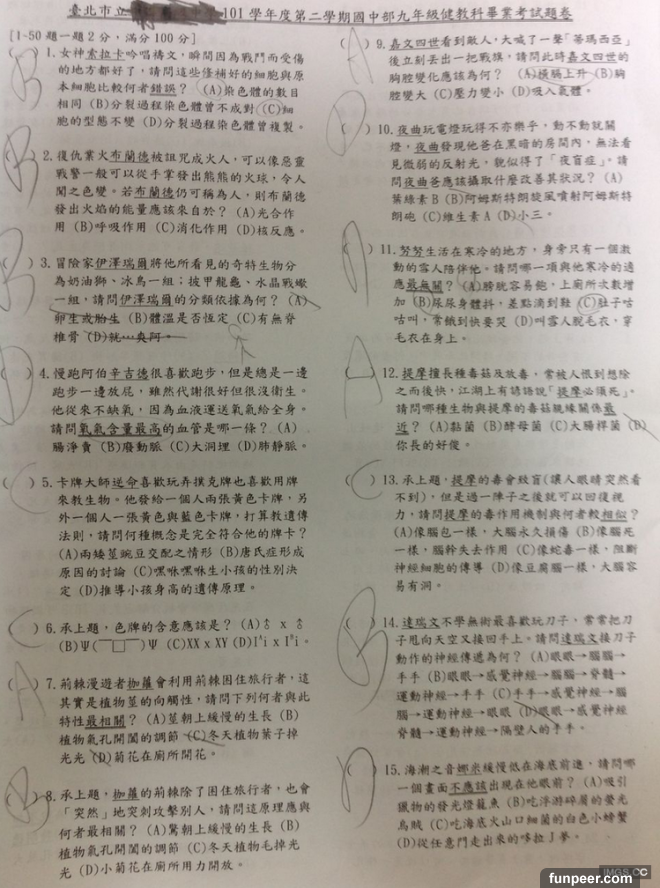 臺北市立 101學年度第二學期國中部九年級健教科畢業考試題卷
[1-50題一題2分,滿分100分]
(B) 1.女神索拉卡吟唱禱文,瞬間因為戰鬥而受傷
的地方都好了,請問這些修補好的細胞與原
本細胞比較何者錯誤? (A)染色體的數目
相同 (B)分裂過程染色體曾不成對 (C)細
胞的型態不變 (D)分裂過程染色體曾複製。
(B) 2.復仇業火布蘭德被詛咒成火人,可以像惡靈
戰警一般可以從手掌發出熊熊的火球,令人
聞之色變。若布蘭德仍可稱為人,則布蘭德
發出火焰的能量應該來自於? (A)光合作
用 (B)呼吸作用 (C)消化作用 (D)核反應。
(B) 3.冒險家伊澤瑞爾將他所看見的奇特生物分
為奶油獅、冰鳥一組;披甲龍龜、水晶戰蠍
一組,請問伊澤瑞爾的分類依據為何? (A)
卵生或胎生 (B)體溫是否恆定 (C)有無脊
椎骨 (D)就…爽阿。
(D) 4.慢跑阿伯辛吉德很喜歡跑步,但是總是一邊
跑步一邊放屁,雖然代謝很好但很沒衛生。
他從來不缺氧,因為血液運送氧氣給全身。
請問氧氣含量最高的血管是哪一條? (A)
腸淨賣 (B)廢動脈 (C)大洞理 (D)肺靜脈。
(C) 5.卡牌大師逆命喜歡玩弄撲克牌也喜歡用牌
來教生物。他發給一個人兩張黃色卡牌,另
外一個人一張黃色與藍色卡牌,打算教遺傳
法則,請問何種概念是完全符合他的牌卡?
(A)兩矮莖豌豆交配之情形 (B)唐氏症形成
原因的討論 (C)嘿咻嘿咻生小孩的性別決
定 (D)推導小孩身高的遺傳原理。
(C) 6.承上題,色牌的含意應該是? (A)♂ x ♂
(B)Ψ(﹁□﹁)Ψ (C)XX x XY (D)Iᴬi x Iᴮi。
(A) 7.荊棘漫遊者枷蘿會利用荊棘困住旅行者,這
其實是植物莖的向觸性,請問下列何者與此
特性最相關? (A)莖朝上緩慢的生長 (B)
植物氣孔開闔的調節 (C)冬天植物葉子掉
光光 (D)菊花在廁所開花。
(B) 8.承上題,枷蘿的荊棘除了困住旅行者,也會
「突然」地突刺攻擊別人,請問這原理應與
何者最相關? (A)驚朝上緩慢的生長 (B)
植物氣孔開闔的調節 (C)冬天植物毛掉光
光 (D)小菊花在廁所用力開放。
(A) 9.嘉文四世看到敵人,大喊了一聲「蒂瑪西亞」
後立刻丟出一把戰旗,請問此時嘉文四世的
胸腔變化應該為何? (A)橫膈上升 (B)胸
腔變大 (C)壓力變小 (D)吸入氣體。
(D) 10.夜曲玩電燈玩得不亦樂乎,動不動就關
燈,夜曲發現他爸在黑暗的房間內,無法看
見微弱的反射光,貌似得了「夜盲症」。請
問夜曲爸應該攝取什麼改善其狀況? (A)
葉綠素B (B)阿姆斯特朗旋風噴射阿姆斯特
朗砲 (C)維生素A (D)小三。
(A) 11.努努生活在寒冷的地方,身旁只有一個激
動的雪人陪伴他。請問哪一項與他寒冷的適
應最無關? (A)膀胱容易飽,上廁所次數增
加 (B)尿尿身體抖,差點滴到鞋 (C)肚子咕
咕叫,常餓到快要哭 (D)叫雪人脫毛衣,穿
毛衣在身上。
(A) 12.提摩擅長種毒菇及放毒,常被人恨到想除
之而後快,江湖上有諺語說「提摩必須死」。
請問哪種生物與提摩的毒菇親緣關係最
近? (A)黏菌 (B)酵母菌 (C)大腸桿菌 (D)
你長的好傻。
(C) 13.承上題,提摩的毒會致盲(讓人眼睛突然看
不到),但是過一陣子之後就可以回復視
力,請問提摩的毒作用機制與何者較相似?
(A)像腦包一樣,大腦永久損傷 (B)像腦死
一樣,腦幹失去作用 (C)像蛇毒一樣,阻斷
神經細胞的傳導 (D)像豆腐腦一樣,大腦容
易有洞。
(B) 14.達瑞文不學無術最喜歡玩刀子,常常把刀
子甩向天空又接回手上。請問達瑞文接刀子
動作的神經傳遞為何? (A)眼眼→腦腦→
手手 (B)眼眼→感覺神經→腦腦→脊髓→
運動神經→手手 (C)手手→感覺神經→腦
腦→運動神經→眼眼 (D)眼眼→感覺神經
脊髓→運動神經→隔壁人的手手。
(D) 15.海潮之音娜米緩慢低在海底前進,請問哪
一個畫面不應該出現在他眼前? (A)吸引
獵物的發光燈籠魚 (B)吃浮游碎屑的螢光
烏賊 (C)吃海底火山口細菌的白色小螃蟹
(D)從任意門走出來的哆拉J夢。
IMGS.CC
funpeer.com